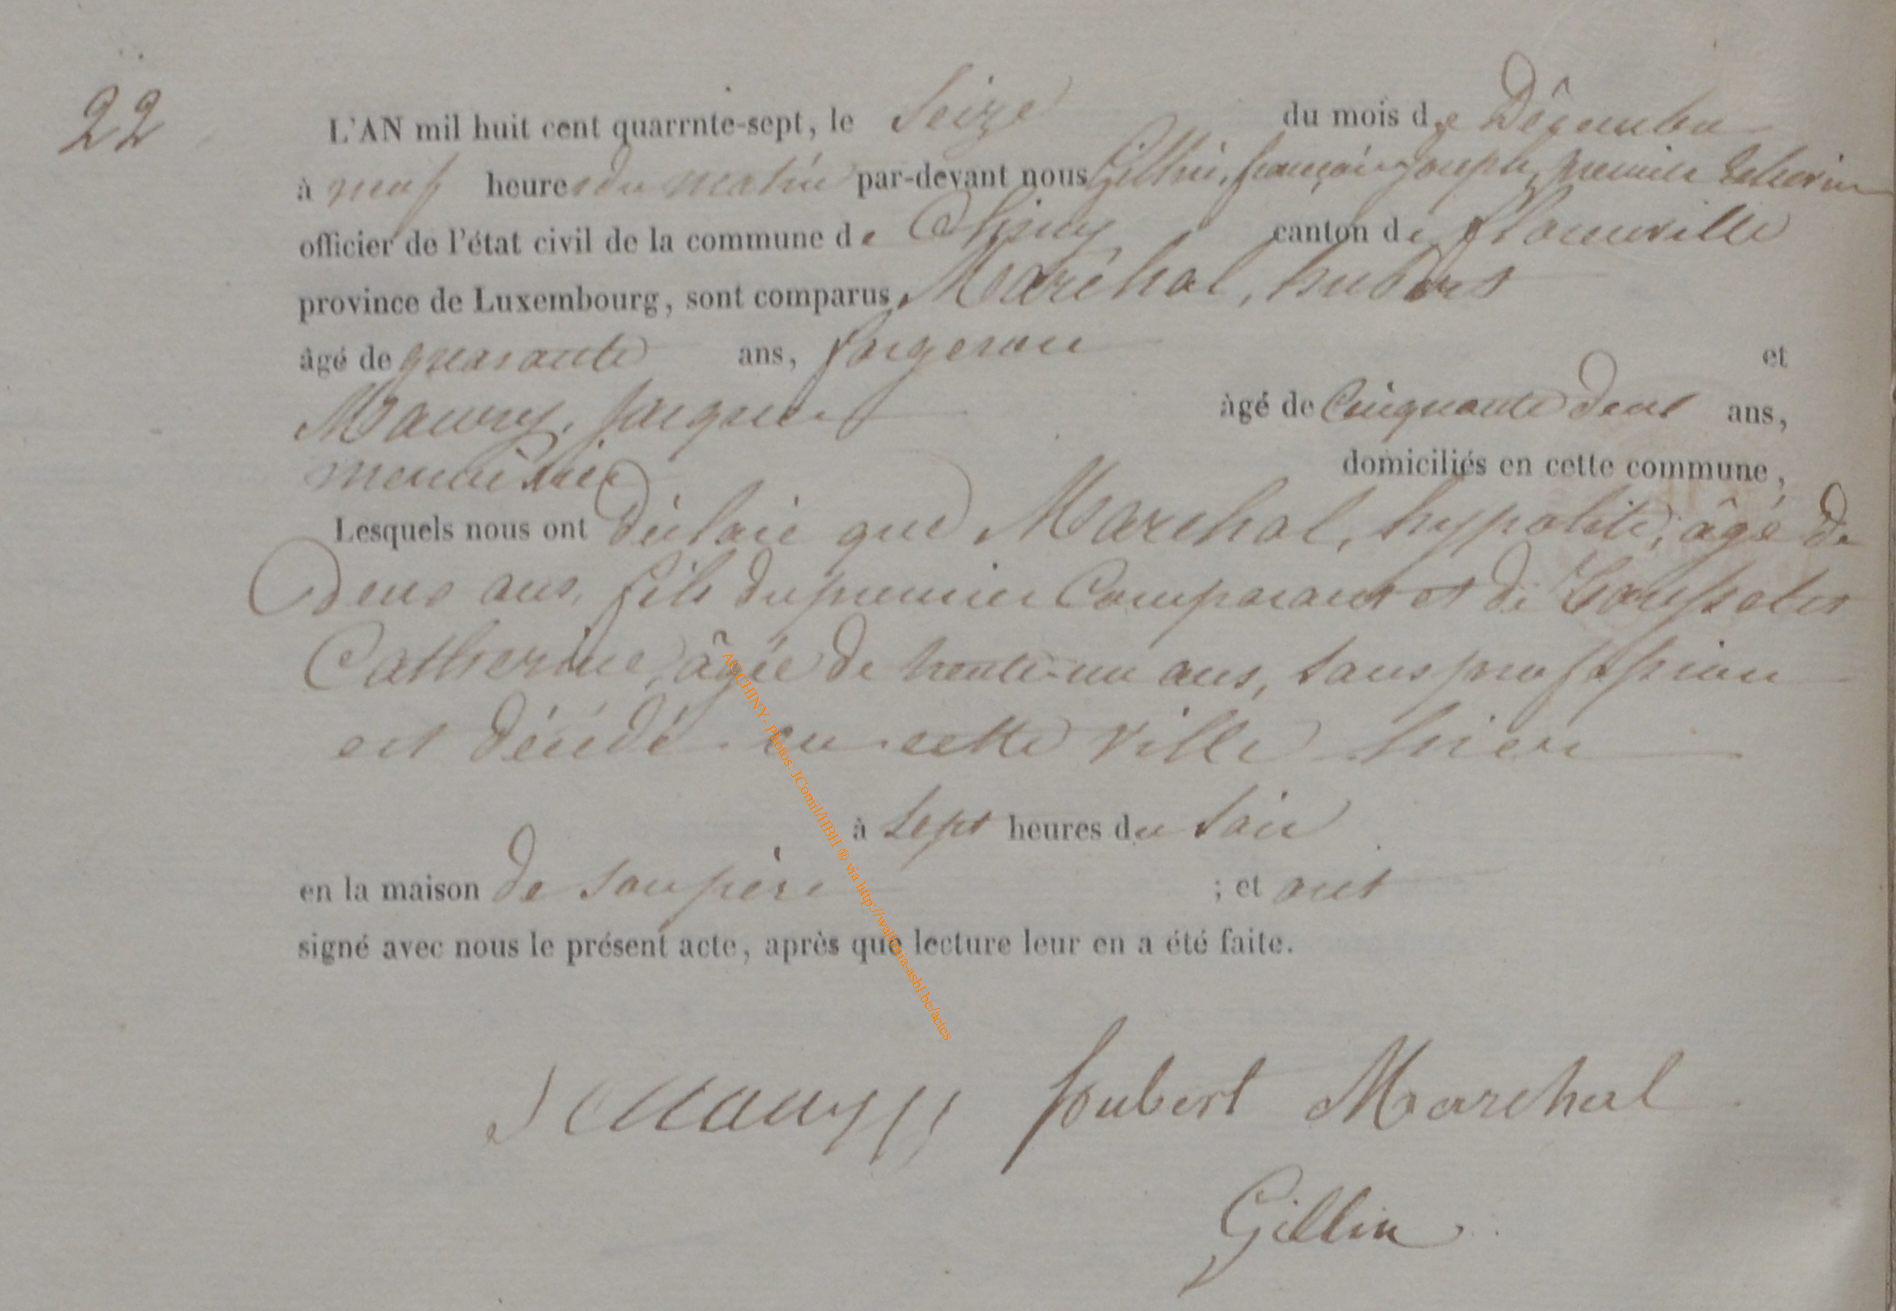 22
L'AN mil huit cent quarrnte-sept, le Seize du mois de Décembre
à neuf heures du matin par-devant nous Gillin, françois joseph, premier Echevin
officier de l'état civil de la commune de Chiny canton de florenville
province de Luxembourg, sont comparus Maréchal, hubert
âgé de quarante ans, forgeron et
Maury, jacques âgé de Cinquante deux ans,
menuisier domiciliés en cette commune,
Lesquels nous ont déclaré que Marechal, hypolite, âgé de
Deux ans, fils du premier Comparant et de
Catherine, âgée de trente-un ans, sans profession
est décédé en cette ville hier
à Sept heures du Soir
en la maison de son père ; et ont
signé avec nous le présent acte, après que lecture leur en a été faite.
J Maury houbert Marechal
Gillin
ACCHINY- Photos: JComil/HBH ® via http://wallonia-asbl.be/actes